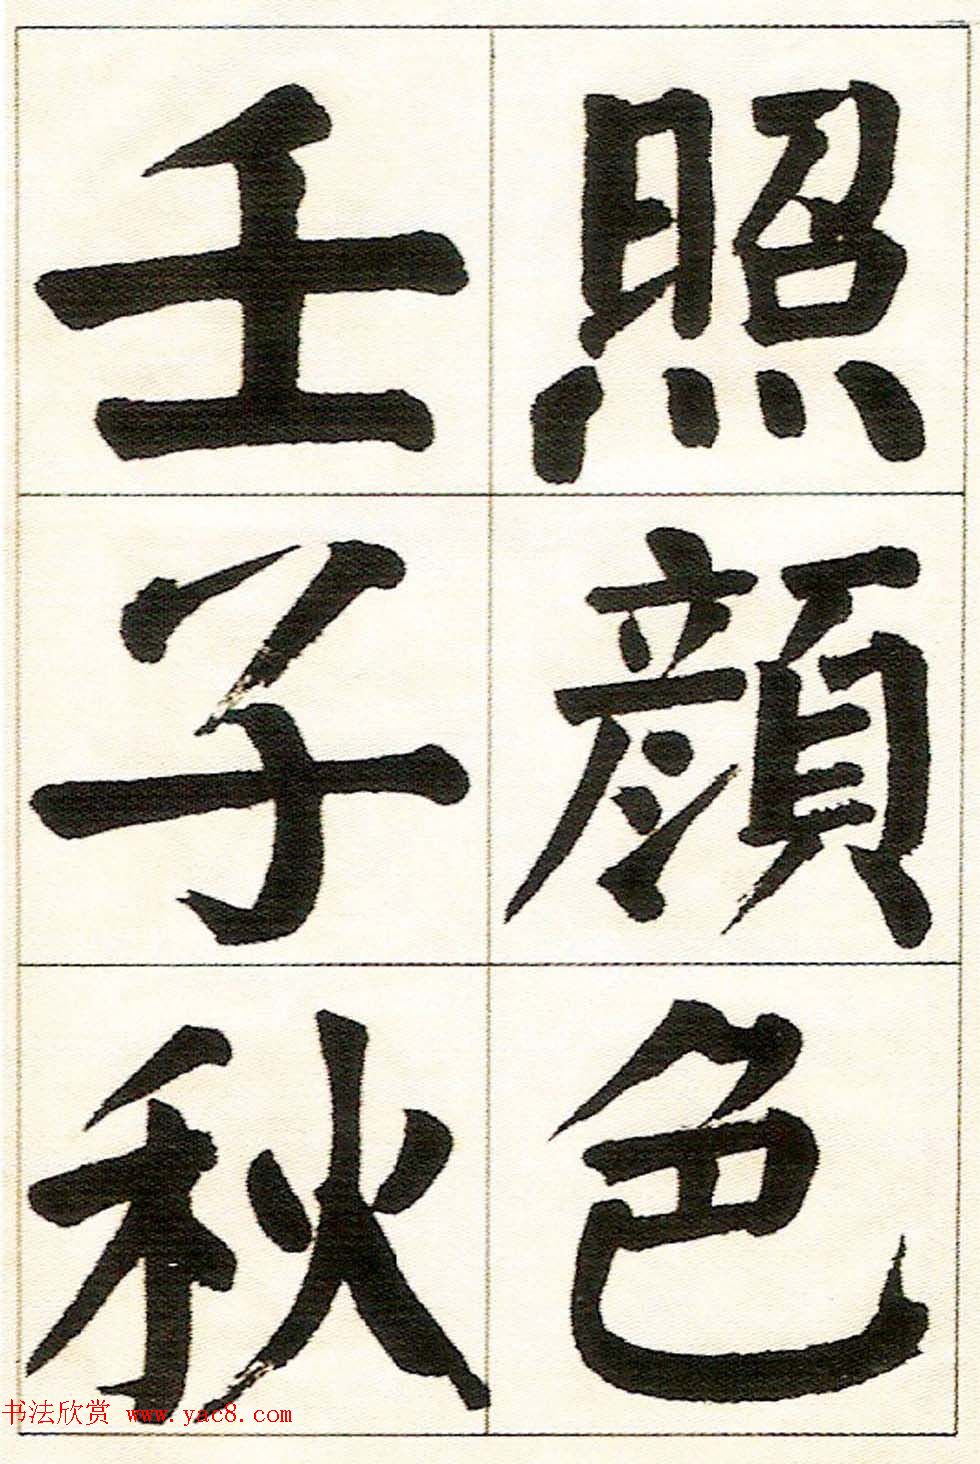 照顔色
壬子秋
书法欣赏 www.yac8.com